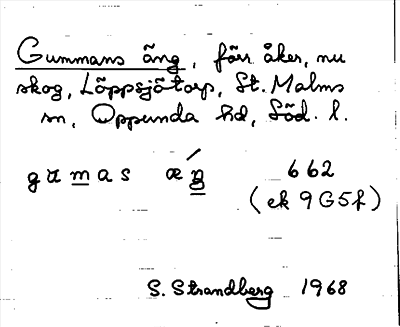 Gummans äng, förr åker, nu
skog, Löppsjötorp, St. Malms
sn, Oppunda hd, Söd. l.
gumas æ´ŋ 662
(ek 9G5f)
S. Strandberg 1968